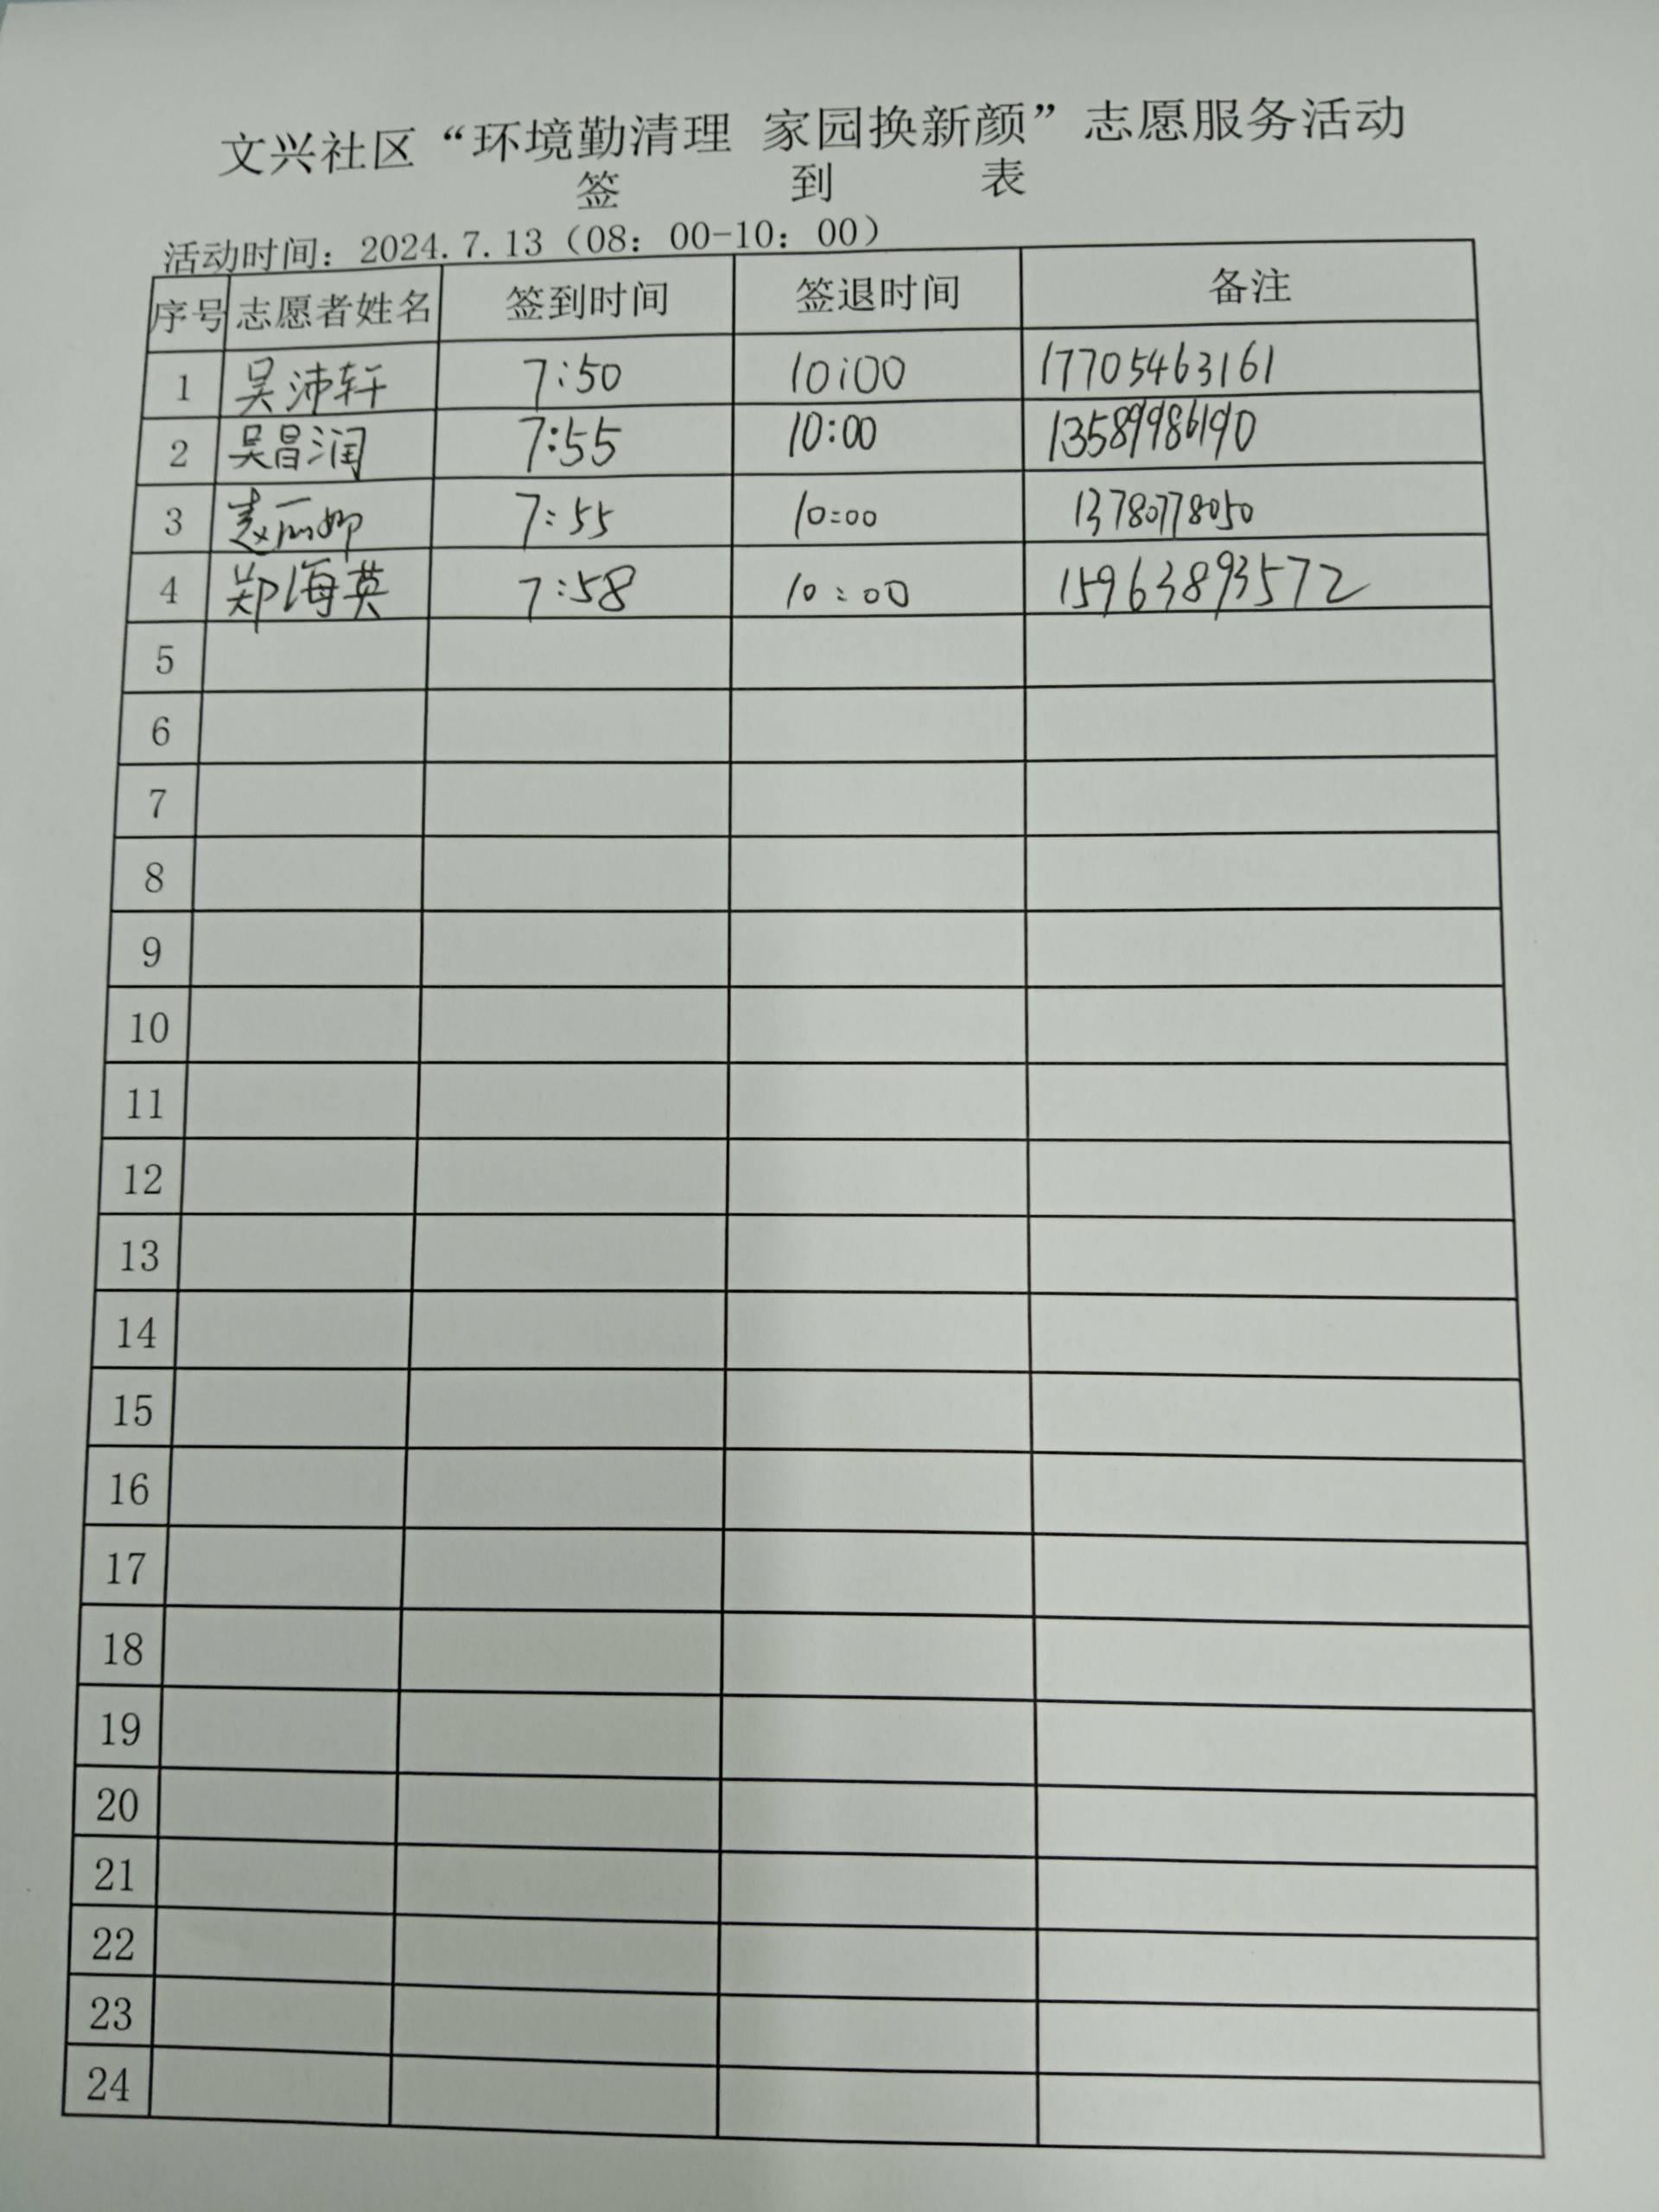 文兴社区“环境勤清理 家园换新颜”志愿服务活动
签 到 表
活动时间：2024.7.13（08：00-10：00）
序号 志愿者姓名 签到时间 签退时间 备注
1 吴沛轩 7:50 10:00 17705463161
2 吴昌润 7:55 10:00 13589986190
3 赵丽娜 7:55 10:00 13780778050
4 郑海英 7:58 10:00 15963893572
5
6
7
8
9
10
11
12
13
14
15
16
17
18
19
20
21
22
23
24